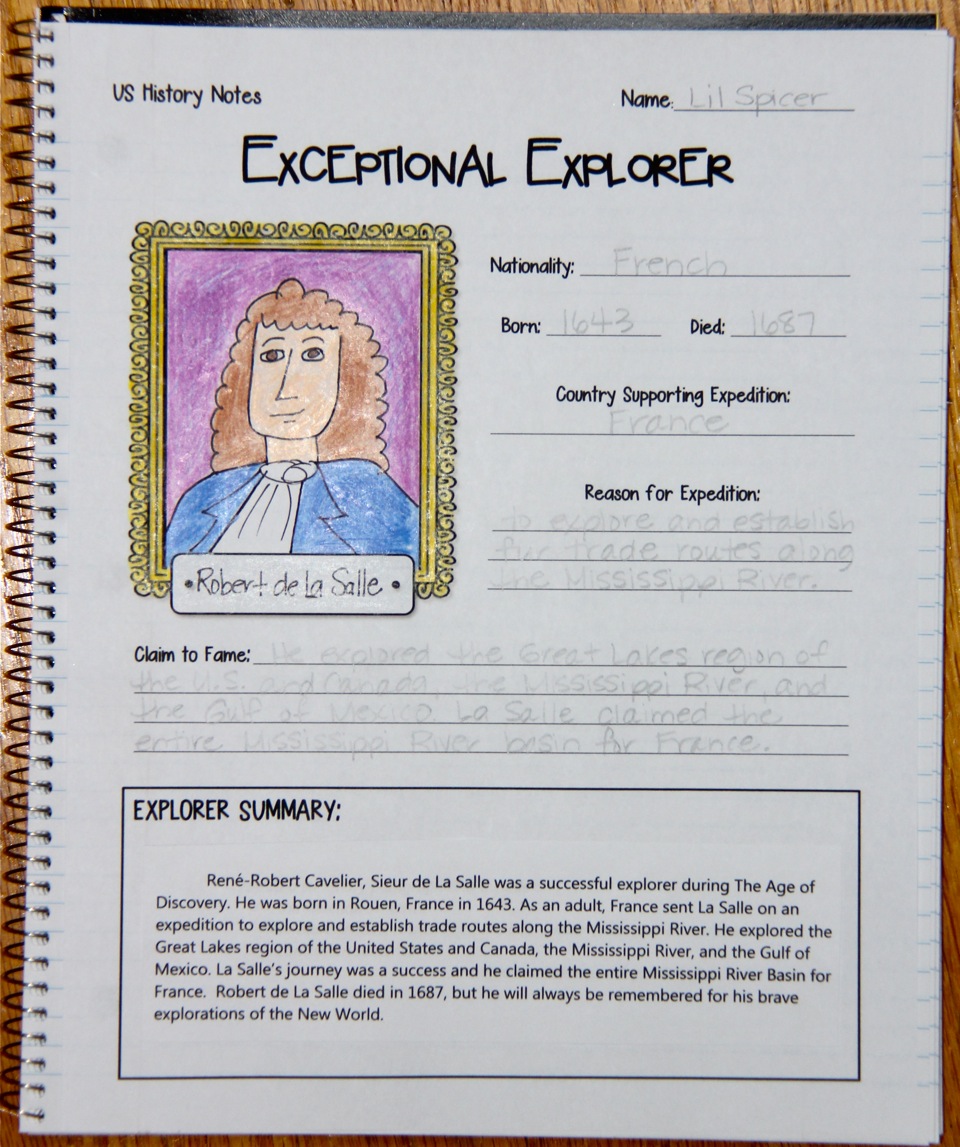 US History Notes
Name: Lil Spicer
EXCEPTIONAL EXPLORER
Nationality: French
Born: 1643 Died: 1687
Country Supporting Expedition:
France
Reason for Expedition:
to explore and establish
fur trade routes along
the Mississippi River.
•Robert de La Salle•
Claim to Fame: He explored the Great Lakes region of
the U.S. and Canada, the Mississippi River, and
the Gulf of Mexico. La Salle claimed the
entire Mississippi River basin for France.
EXPLORER SUMMARY:
René-Robert Cavelier, Sieur de La Salle was a successful explorer during The Age of
Discovery. He was born in Rouen, France in 1643. As an adult, France sent La Salle on an
expedition to explore and establish trade routes along the Mississippi River. He explored the
Great Lakes region of the United States and Canada, the Mississippi River, and the Gulf of
Mexico. La Salle's journey was a success and he claimed the entire Mississippi River Basin for
France. Robert de La Salle died in 1687, but he will always be remembered for his brave
explorations of the New World.